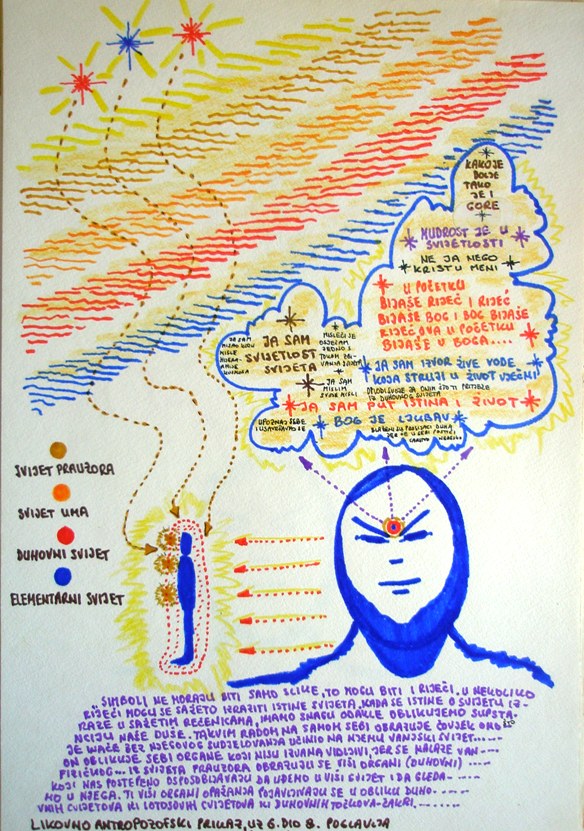 KAKO JE
DOLJE
TAKO
JE I
GORE
MUDROST JE U
SVIJETLOSTI
NE JA NEGO
KRIST U MENI
U POČETKU
BIJAŠE RIJEČ I RIJEČ
BIJAŠE BOG I BOG BIJAŠE
RIJEČ OVA U POČETKU
BIJAŠE U BOGA....
JA SAM IZVOR ŽIVE VODE
KOJA STRUJI U ŽIVOT VJEČNI
JA SAM PUT ISTINA I ŽIVOT
BOG JE LJUBAV
JA SAM
SVIJETLOST
SVIJETA
MISLEĆI SE
OSJEĆAM
JEDNO S
JA SAM
MISLIM
UPOZNAJ SEBE
SVIJET PRAUZORA
SVIJET UMA
DUHOVNI SVIJET
ELEMENTARNI SVIJET
SIMBOLI NE MORAJU BITI SAMO SLIKE, TO MOGU BITI I RIJEČI. U NEKOLIKO
RIJEČI MOGU SE SAŽETO IZRAZITI ISTINE SVIJETA, KADA SE ISTINE O SVIJETU IZ-
RAZE U SAŽETIM REČENICAMA, IMAMO SNAGU ODAKLE OBLIKUJEMO SUPSTA-
NCIJU NAŠE DUŠE. TAKVIM RADOM NA SAMOM SEBI OBRAZUJE ČOVJEK ONO ŠTO
JE INAČE BEZ NJEGOVOG SUDJELOVANJA UČINIO NA NJEMU VANJSKI SVIJET.....
ON OBLIKUJE SEBI ORGANE KOJI NISU IZVANA VIDLJIVI, JER SE NALAZE VAN---
FIZIČKOG... IZ SVIJETA PRAUZORA OBRAZUJU SE VIŠI ORGANI (DUHOVNI) ---
KOJI NAS POSTEPENO OSPOSOBLJAVAJU DA UĐEMO U VIŠI SVIJET I DA GLEDA-
MO U NJEGA. TI VIŠI ORGANI OPAŽANJA POJAVLJUJU SE U OBLIKU DUHO-
VNIH CVIJETOVA ILI LOTOSOVIH CVIJETOVA ILI DUHOVNIH TOČKOVA-ČAKRI.------
LIKOVNO ANTROPOZOFSKI PRIKAZ, UZ 6. DIO 8. POGLAVLJA